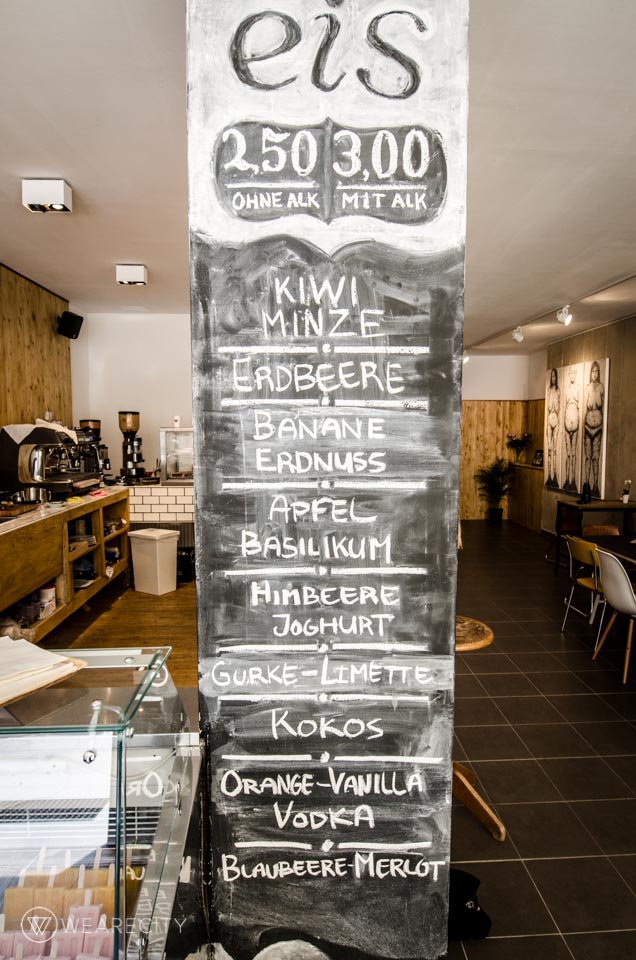 eis
2,50 3,00
OHNE ALK MIT ALK
KIWI
MINZE
ERDBEERE
BANANE
ERDNUSS
APFEL
BASILIKUM
HIMBEERE
JOGHURT
GURKE-LIMETTE
KOKOS
ORANGE-VANILLA
VODKA
BLAUBEERE-MERLOT
WEARECITY